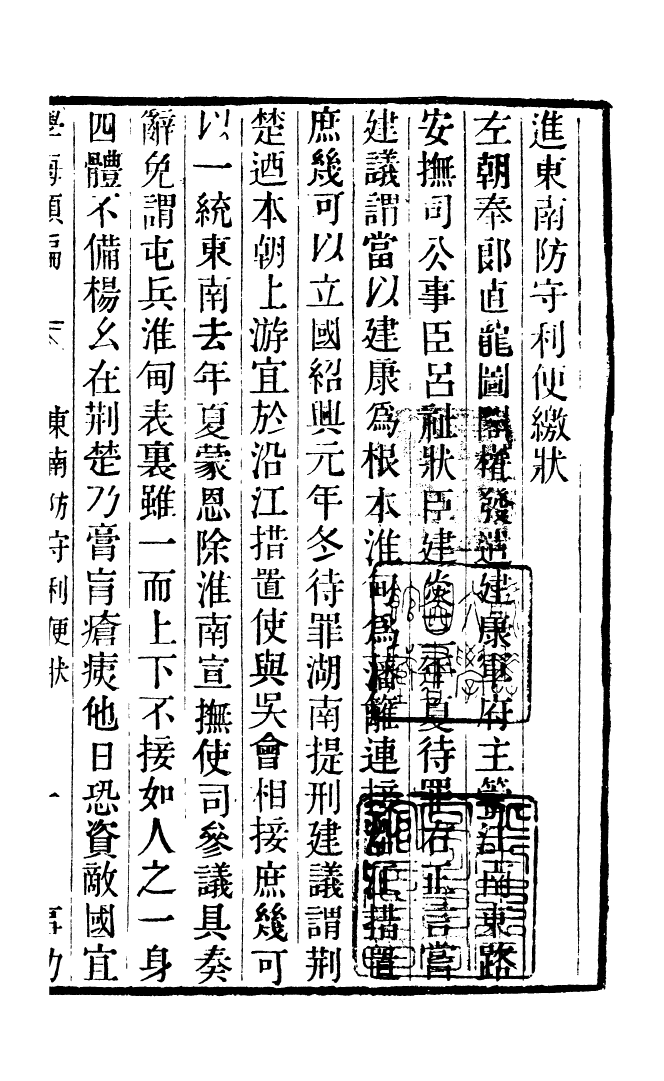 進東南防守利便繳狀
左朝奉郎直龍圖閣權發遣建康軍府主管江南東路
安撫司公事臣呂祉狀臣建炎四年夏待罪右正言嘗
建議謂當以建康爲根本淮甸爲藩籬連接沿江措置
庶幾可以立國紹興元年冬待罪湖南提刑建議謂荆
楚迺本朝上游宜於沿江措置使與吴會相接庶幾可
以一統東南去年夏蒙恩除淮南宣撫使司參議具奏
辭免謂屯兵淮甸表裏雖一而上下不接如人之一身
四體不備楊幺在荆楚乃膏肓瘡痍他日恐資敵國宜
學海類編 東南防守利便狀 一